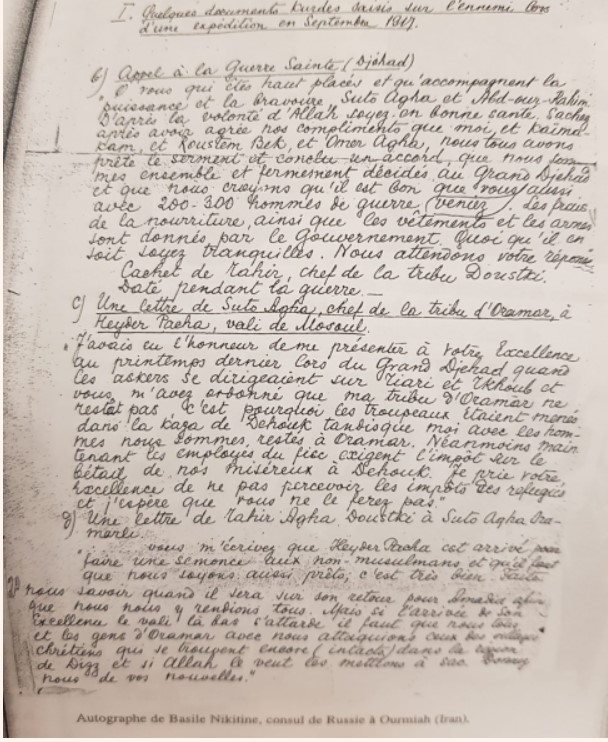 I. Quelques documents Kurdes saisis sur l'ennemi lors
d'une expédition en Septembre 1917.
b) Appel à la Guerre Sainte (Djéhad)
"O vous qui êtes haut placés et qu'accompagnent la
puissance et la bravoure, Suto Agha et Abd-our-Rahim.
D'après la volonté d'Allah soyez en bonne santé. Sachez
après avoir agréé nos compliments que moi, et Kaima-
kam, et Roustem Bek, et Omer Agha, nous tous avons
prêté le serment et conclu un accord, que nous som-
mes ensemble et fermement décidés au Grand Djehad
et que nous croyons qu'il est bon que vous aussi
avec 200-300 hommes de guerre (veniez). Les frais
de la nourriture, ainsi que les vêtements et les armes
sont donnés par le Gouvernement. Quoi qu'il en
soit soyez tranquilles. Nous attendons votre réponse
Cachet de Tahir, chef de la tribu Doustki.
Daté pendant la guerre.—
c) Une lettre de Suto Agha, chef de la tribu d'Oramar, à
Heyder Pacha, vali de Mosoul.
"J'avais eu l'honneur de me présenter à Votre Excellence
au printemps dernier lors du Grand Djehad quand
les askers se dirigeaient sur Tiari et Tkhoub et
vous m'avez ordonné que ma tribu d'Oramar ne
restât pas, c'est pourquoi les troupeaux étaient menés
dans la kaza de Dehouk tandisque moi avec les hom-
mes nous sommes restés à Oramar. Néanmoins main
tenant les employés du fisc exigent l'impôt sur le
bétail de nos miséreux à Dehouk. Je prie votre
Excellence de ne pas percevoir les impôts des refugiés
et j'espère que vous ne le ferez pas"
g) Une lettre de Tahir Agha Doustki à Suto Agha Ora-
marli.
"vous m'écrivez que Heyder Pacha est arrivé pour
faire une semonce aux non-musulmans et qu'il faut
que nous soyons aussi prêts, c'est très bien. Faites
nous savoir quand il sera sur son retour pour Amadia afin
que nous nous y rendions tous. Mais si l'arrivée de son
Excellence le vali là bas s'attarde il faut que nous tous
et les gens d'Oramar avec nous attaquions ceux des villages
chrétiens qui se trouvent encore (intacts) dans la région
de Dizz et si Allah le veut les mettions à sac. Donnez
nous de vos nouvelles."
Autographe de Basile Nikitine, consul de Russie à Ourmiah (Iran).